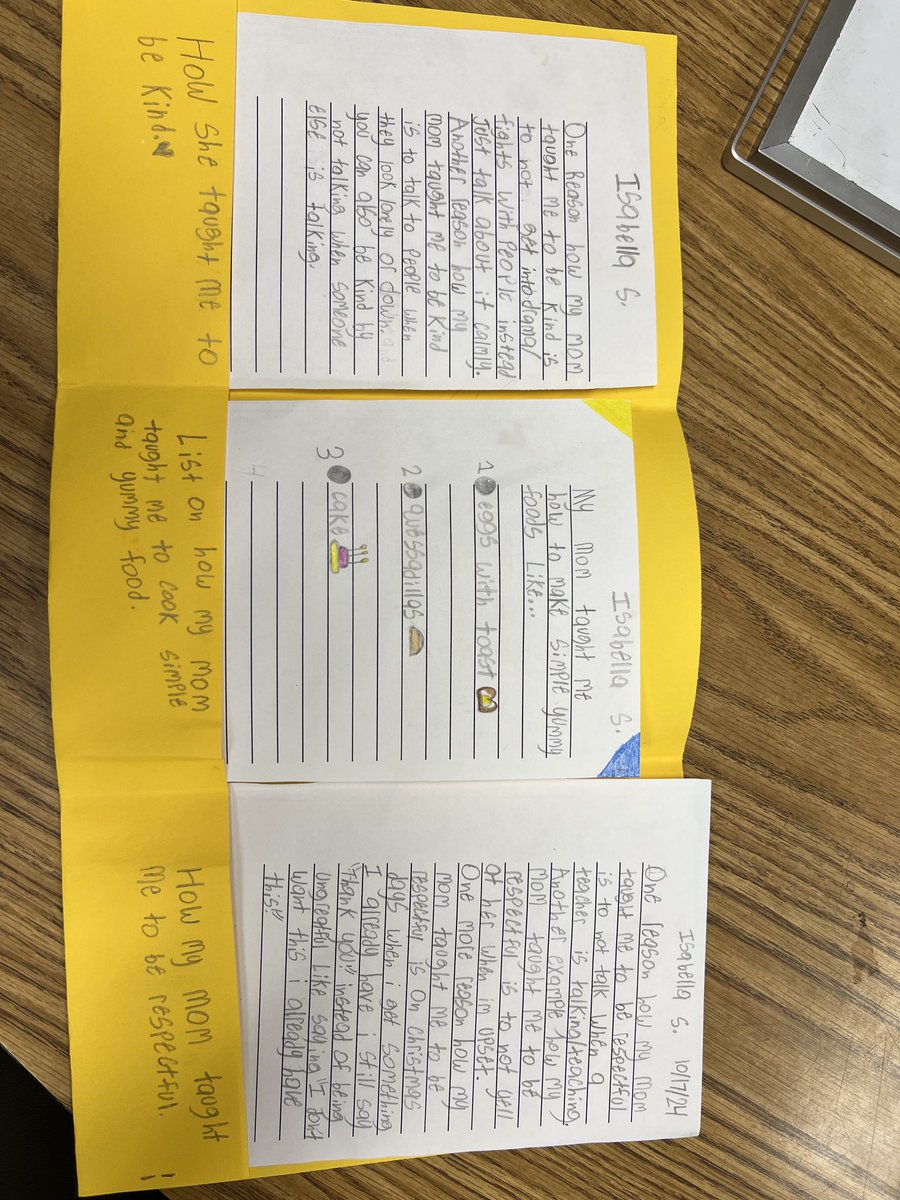 Isabella S.
One Reason how my mom
taught me to be kind is
to not get into drama/
fights with people instead
Just talk about it calmly.
Another reason how my
mom taught me to be kind
is to talk to people when
they look lonely or down.
you can also be kind by
not talking when someone
else is talking.
How she taught me to
be kind.
Isabella S.
My mom taught me
how to make simple yummy
foods like...
1 eggs with toast
2 quessadillas
3 cake
4
List on how my mom
taught me to cook simple
and yummy food.
Isabella S. 10/17/24
One reason how my mom
taught me to be respectful
is to not talk when a
teacher is talking/teaching.
Another example how my
mom taught me to be
respectful is to not yell
at her when im upset.
One more reason how my
mom taught me to be
respectful is on christmas
days when i get something
I already have i still say
"Thank you" instead of being
ungreatful like saying "I dont
want this i already have
this!"
How my mom taught
me to be respectful.